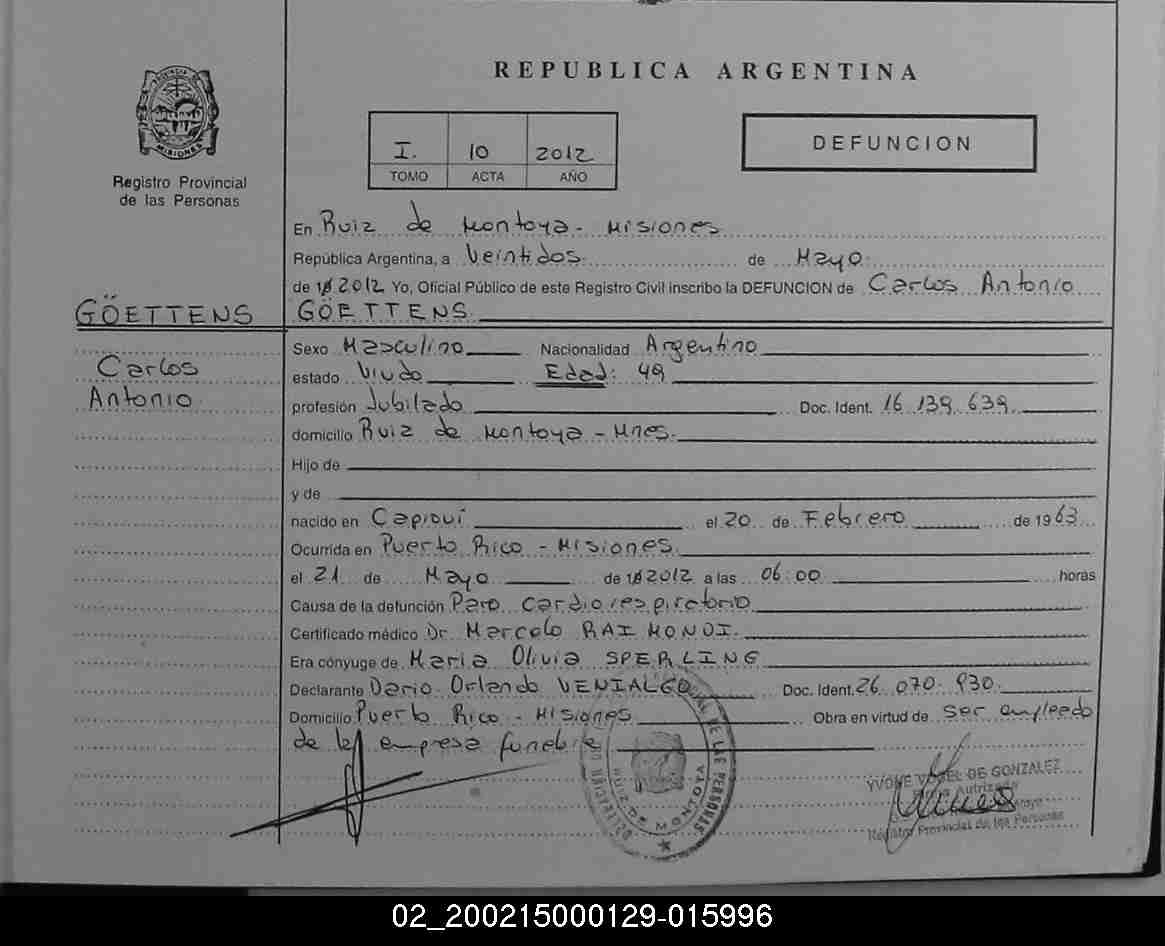 REPUBLICA ARGENTINA
PROVINCIA DE
MISIONES
Registro Provincial
de las Personas
I. 10 2012
TOMO ACTA AÑO
DEFUNCION
En Ruiz de Montoya - Misiones
República Argentina, a Veintidos de Mayo
de 2012 Yo, Oficial Público de este Registro Civil inscribo la DEFUNCION de Carlos Antonio
GÖETTENS
GÖETTENS
Carlos
Antonio
Sexo Masculino Nacionalidad Argentino
estado Viudo Edad: 49
profesión Jubilado Doc. Ident. 16 139 639
domicilio Ruiz de Montoya - Mnes.
Hijo de
y de
nacido en Capioví el 20 de Febrero de 1963
Ocurrida en Puerto Rico - Misiones
el 21 de Mayo de 2012 a las 06:00 horas
Causa de la defunción Paro cardiorespiratorio
Certificado médico Dr. Marcelo RAIMONDI.
Era cónyuge de Maria Olivia SPERLING
Declarante Dario Orlando VENIALGO Doc. Ident. 26 070 930
Domicilio Puerto Rico - Misiones Obra en virtud de Ser empleado
de la empresa funebre
DELEGACION DE LAS PERSONAS
RUIZ DE MONTOYA
YVONE VOGEL DE GONZALEZ
Firma Autorizada
Registro Provincial de las Personas
02_200215000129-015996